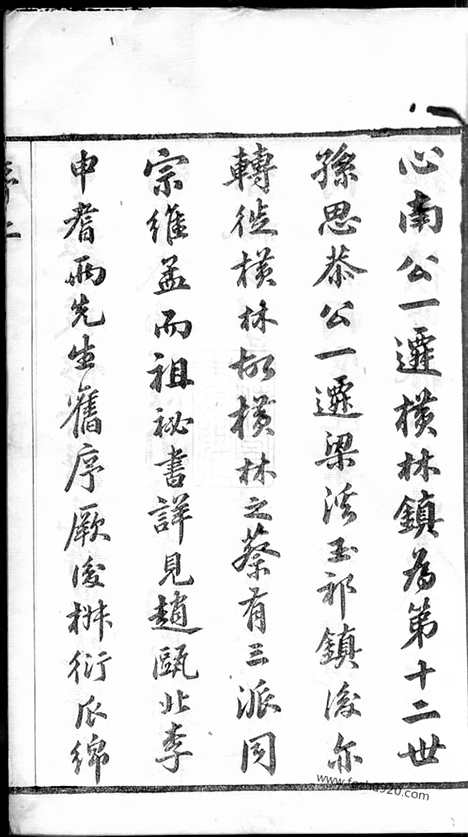 心南公一遷橫林鎮為第十二世
孫思恭公一遷梁溪玉祁鎮後亦
轉徙橫林故橫林之蔡有三派同
宗維孟而祖祕書詳見趙甌北李
申耆兩先生舊序厥後椒衍瓜綿
www.fengh920.com